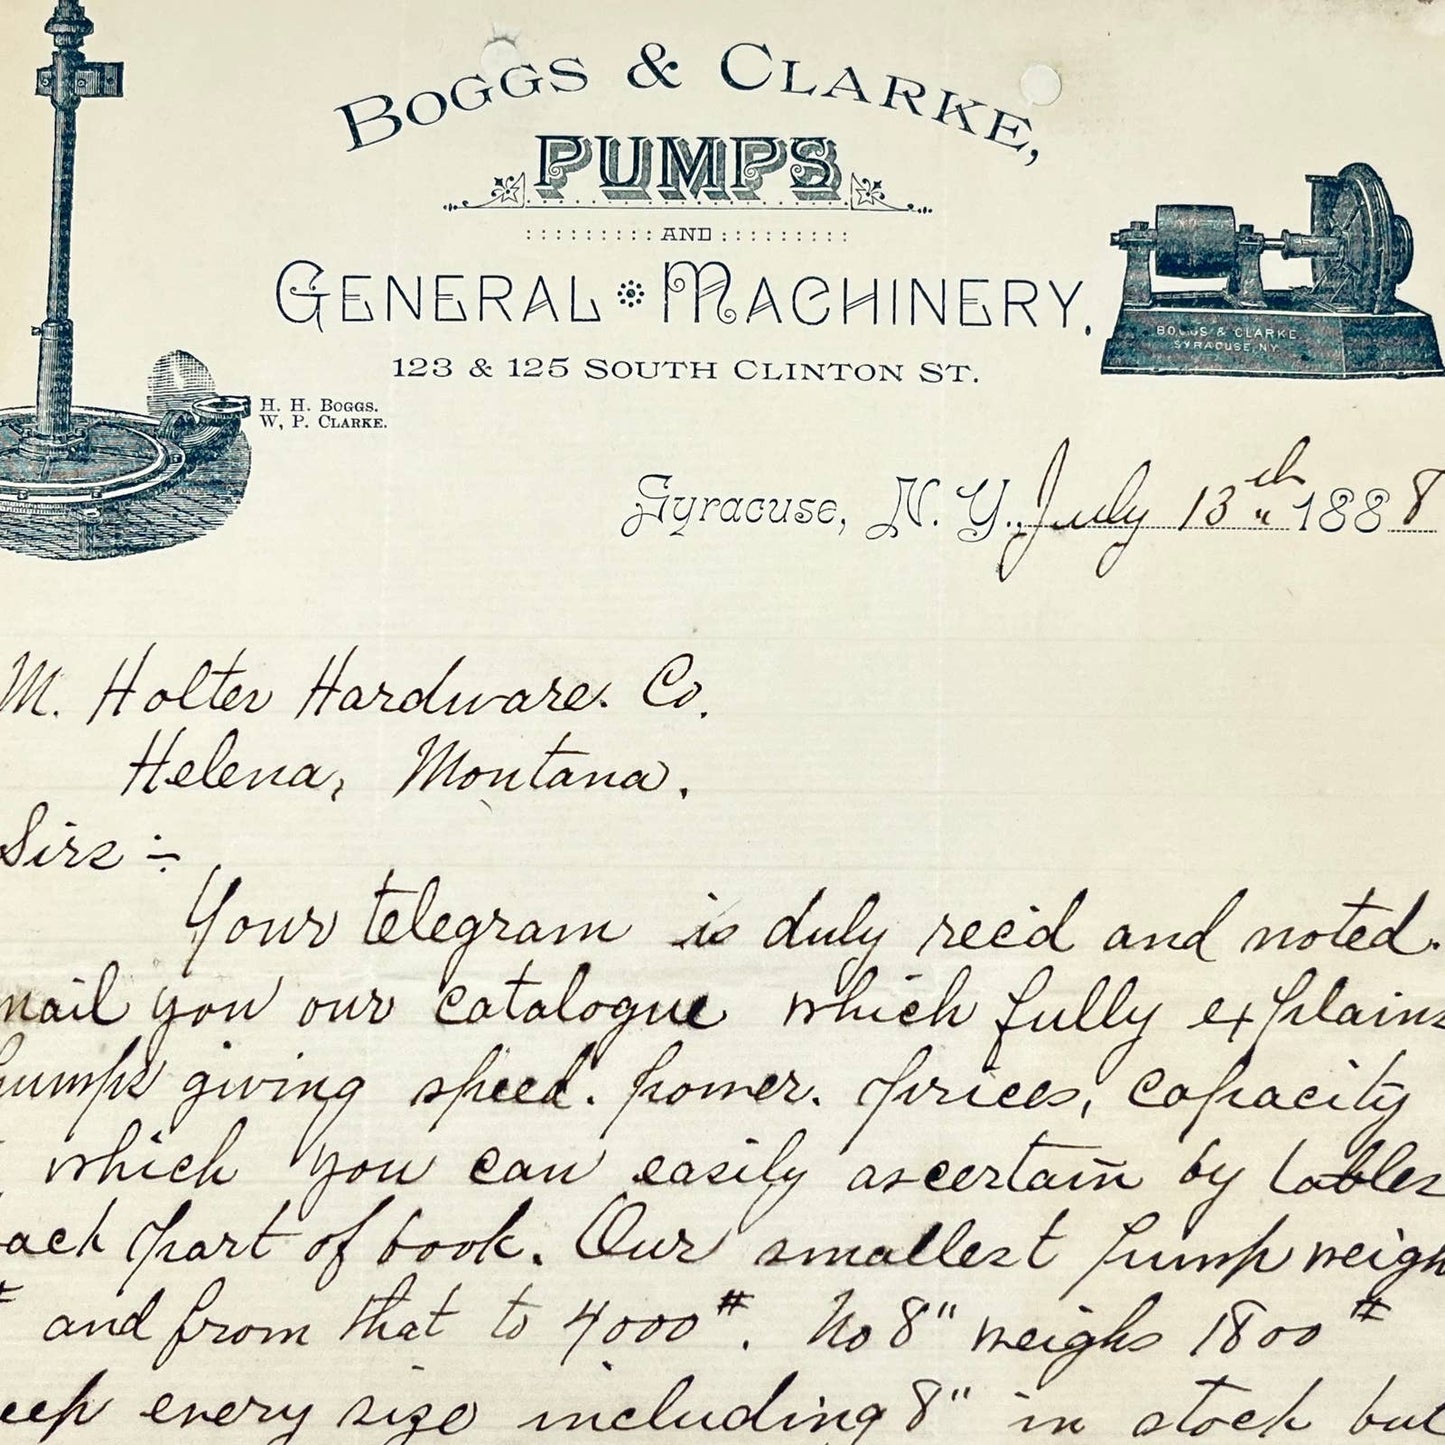 BOGGS & CLARKE,
PUMPS
AND
GENERAL MACHINERY.
123 & 125 SOUTH CLINTON ST.
BOGGS & CLARKE
SYRACUSE, N.Y.
H. H. BOGGS.
W, P. CLARKE.
Syracuse, N. Y., July 13th 1888
M. Holter Hardware. Co.
Helena, Montana.
Sirs :-
Your telegram is duly rec'd and noted.
mail you our catalogue which fully explains
pumps giving speed. power. prices, capacity
which you can easily ascertain by tables
back part of book. Our smallest pump weigh
# and from that to 4000#. No 8" weighs 1800#
keep every size including 8" in stock but